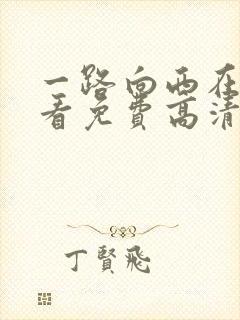 一路向西在
看免费高清
丁賢飛